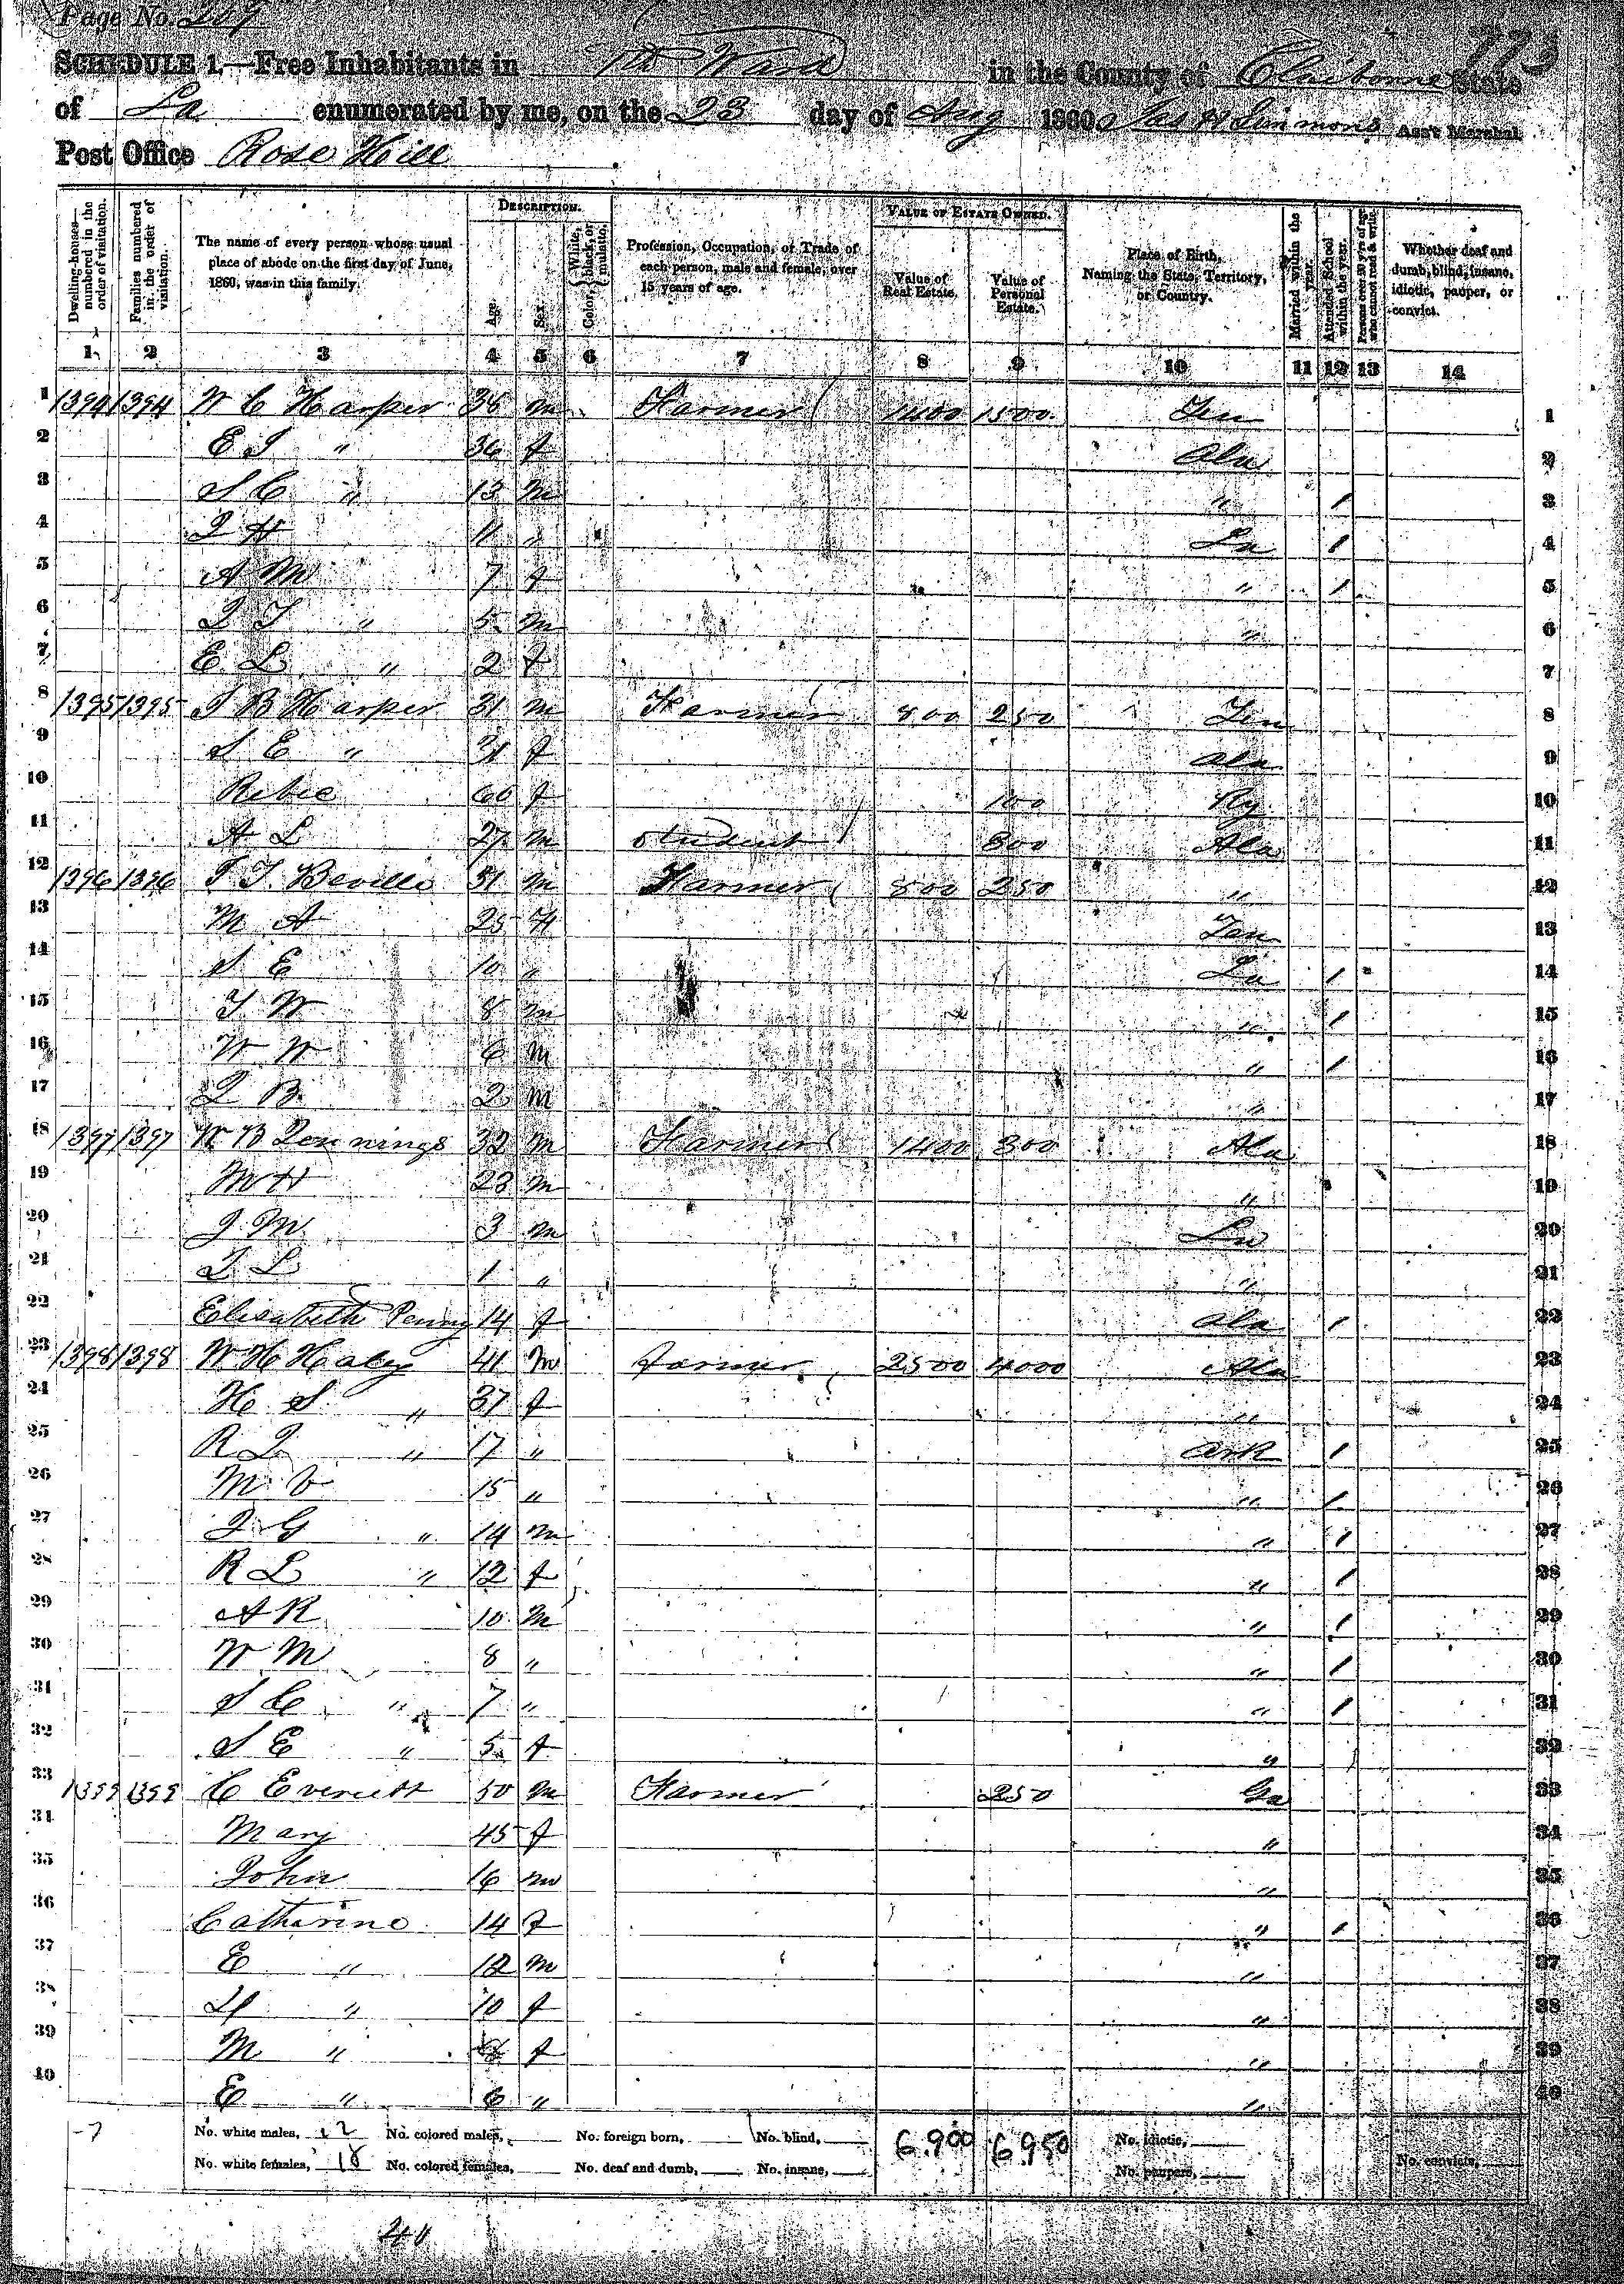 Page No. 209
775
SCHEDULE 1.—Free Inhabitants in 7th Ward in the County of Claiborne State
of La enumerated by me, on the 23 day of Aug 1860. Jas H Simmons Ass't Marshal.
Post Office Rose Hill
Dwelling-houses—numbered in the order of visitation.
Families numbered in the order of visitation.
The name of every person whose usual place of abode on the first day of June, 1860, was in this family.
DESCRIPTION.
Age.
Sex.
Color, { White, black, or mulatto.
Profession, Occupation, or Trade of each person, male and female, over 15 years of age.
VALUE OF ESTATE OWNED.
Value of Real Estate.
Value of Personal Estate.
Place of Birth, Naming the State, Territory, or Country.
Married within the year.
Attended School within the year.
Persons over 20 y'rs of age who cannot read & write.
Whether deaf and dumb, blind, insane, idiotic, pauper, or convict.
1 2 3 4 5 6 7 8 9 10 11 12 13 14
1 1394 1394 W C Harper 38 m Farmer 1400 1500 Ten 1
2 E J " 36 f Ala 2
3 S C " 13 m " / 3
4 J H 11 " La / 4
5 A M 7 f " / 5
6 J T " 5 m " 6
7 E L " 2 f 7
8 1395 1395 J B Harper 31 m Farmer 800 250 Ten 8
9 S E " 31 f Ala 9
10 Rebec 60 f 100 Ky 10
11 A L 27 m Student 800 Ala 11
12 1396 1396 T J Beville 31 m Farmer 800 250 " 12
13 M A 25 F Ten 13
14 S E 10 " La / 14
15 T W 8 m " / 15
16 W W 6 m " / 16
17 J B 2 m " 17
18 1397 1397 W B Jennings 32 m Farmer 1400 300 Ala 18
19 M H 23 m " 19
20 J M 3 m La 20
21 J L 1 " " 21
22 Elisabeth Penny 14 f Ala / 22
23 1398 1398 W H Haley 41 m farmer 2500 4000 Ala 23
24 H S " 37 f " 24
25 R J " 17 " Ark / 25
26 M V 15 " " / 26
27 J G " 14 m " / 27
28 R L " 12 f " / 28
29 A R 10 m " / 29
30 W M 8 " " / 30
31 S C " 7 " " / 31
32 S E " 5 f " 32
33 1399 1399 C Everett 50 m Farmer 250 Ga 33
34 Mary 45 f " 34
35 John 16 m " 35
36 Catharine 14 f " / 36
37 E " 12 m " 37
38 " 10 f " 38
39 M " 8 f " 39
40 E " 6 " " 40
No. white males, 22 No. colored males, No. foreign born, No. blind, 6.900 6950 No. idiotic,
No. white females, 18 No. colored females, No. deaf and dumb, No. insane, No. paupers, No. convicts,
40